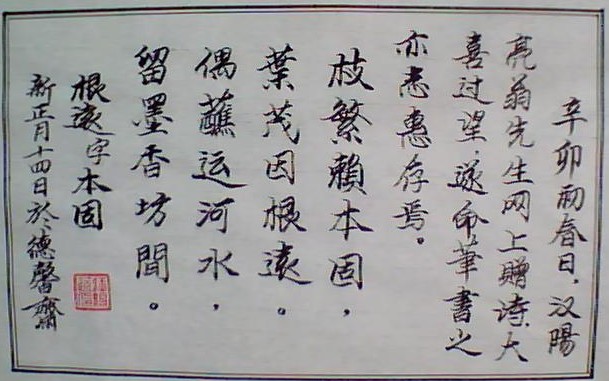 辛卯初春日，汉陽
亮翁先生网上赠诗，大
喜过望，遂命筆書之
亦志惠存焉。
枝繁賴本固，
葉茂因根遠。
偶蘸运河水，
留墨香坊間。
根遠字本固
新正月十四日於德馨齋